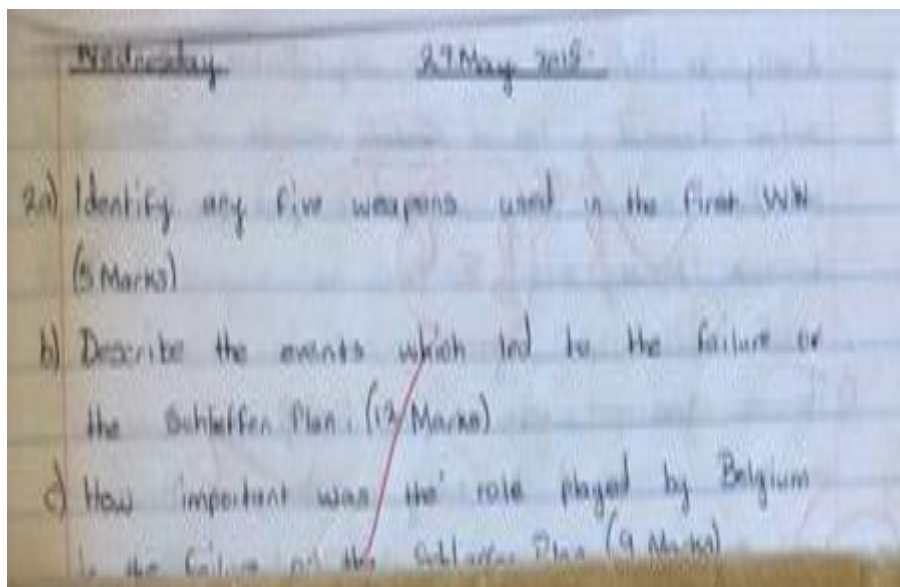 Wednesday 27 May 2015
2a) Identify any five weapons used in the first WW
(5 Marks)
b) Describe the events which led to the failure of
the Schleffen Plan. (12 Marks)
c) How important was the role played by Belgium
in the failure of the Schleffen Plan (9 Marks)